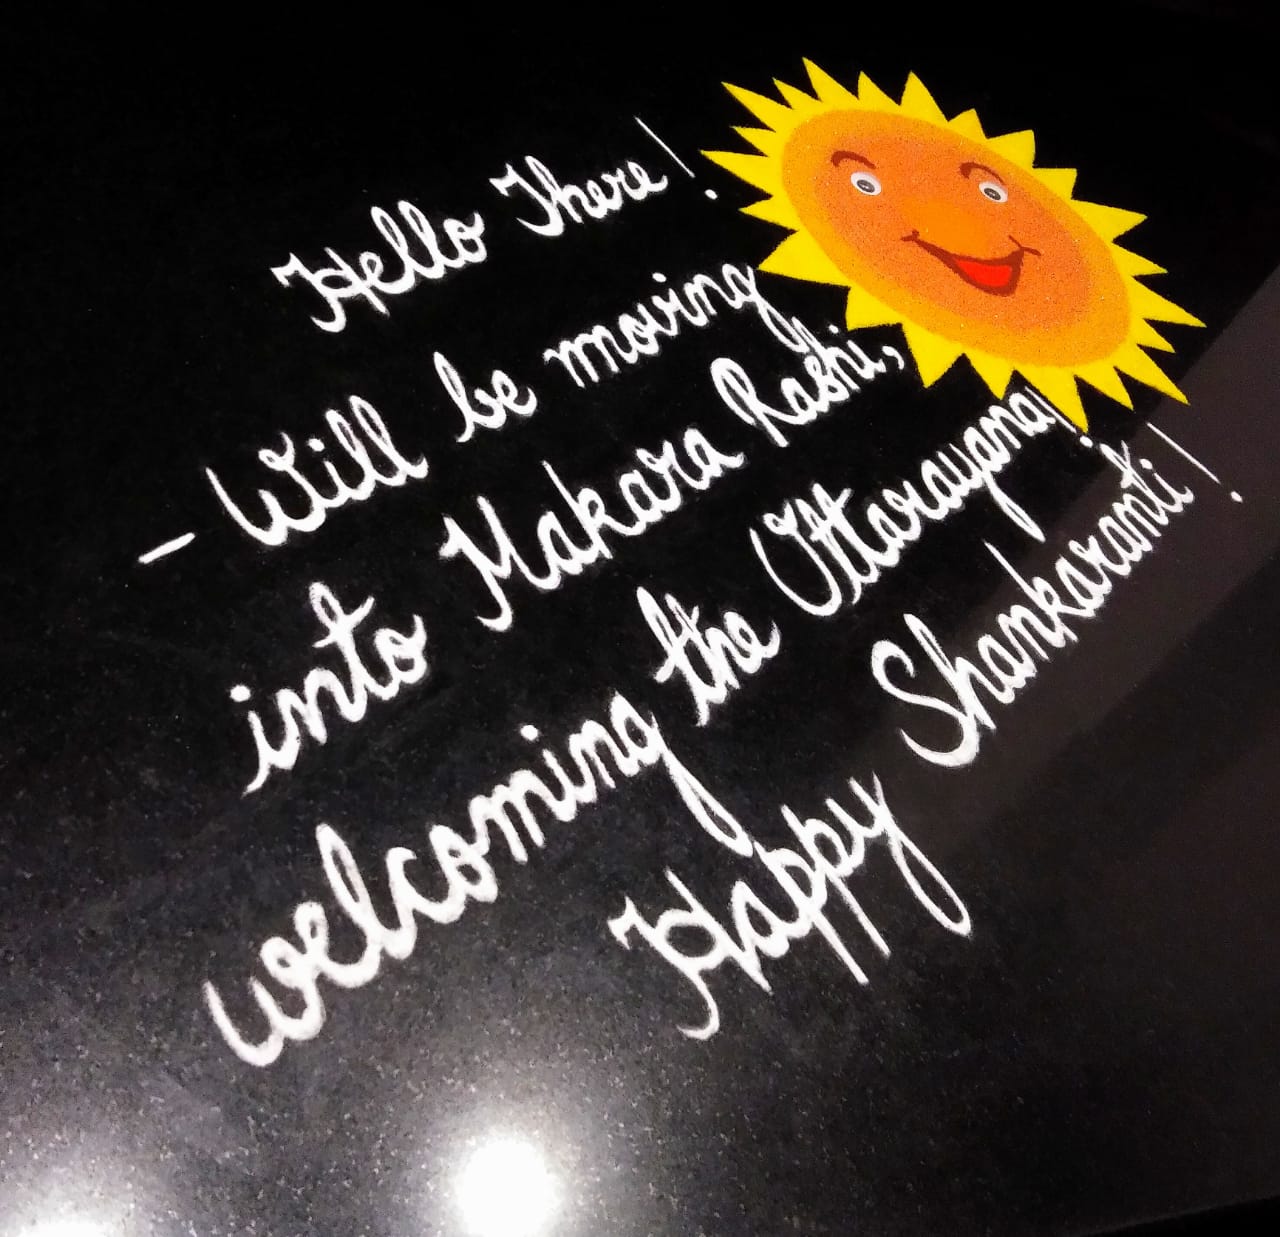 Hello There!
- Will be moving
into Makara Rashi,
welcoming the Uttarayana!
Happy Shankaranti!